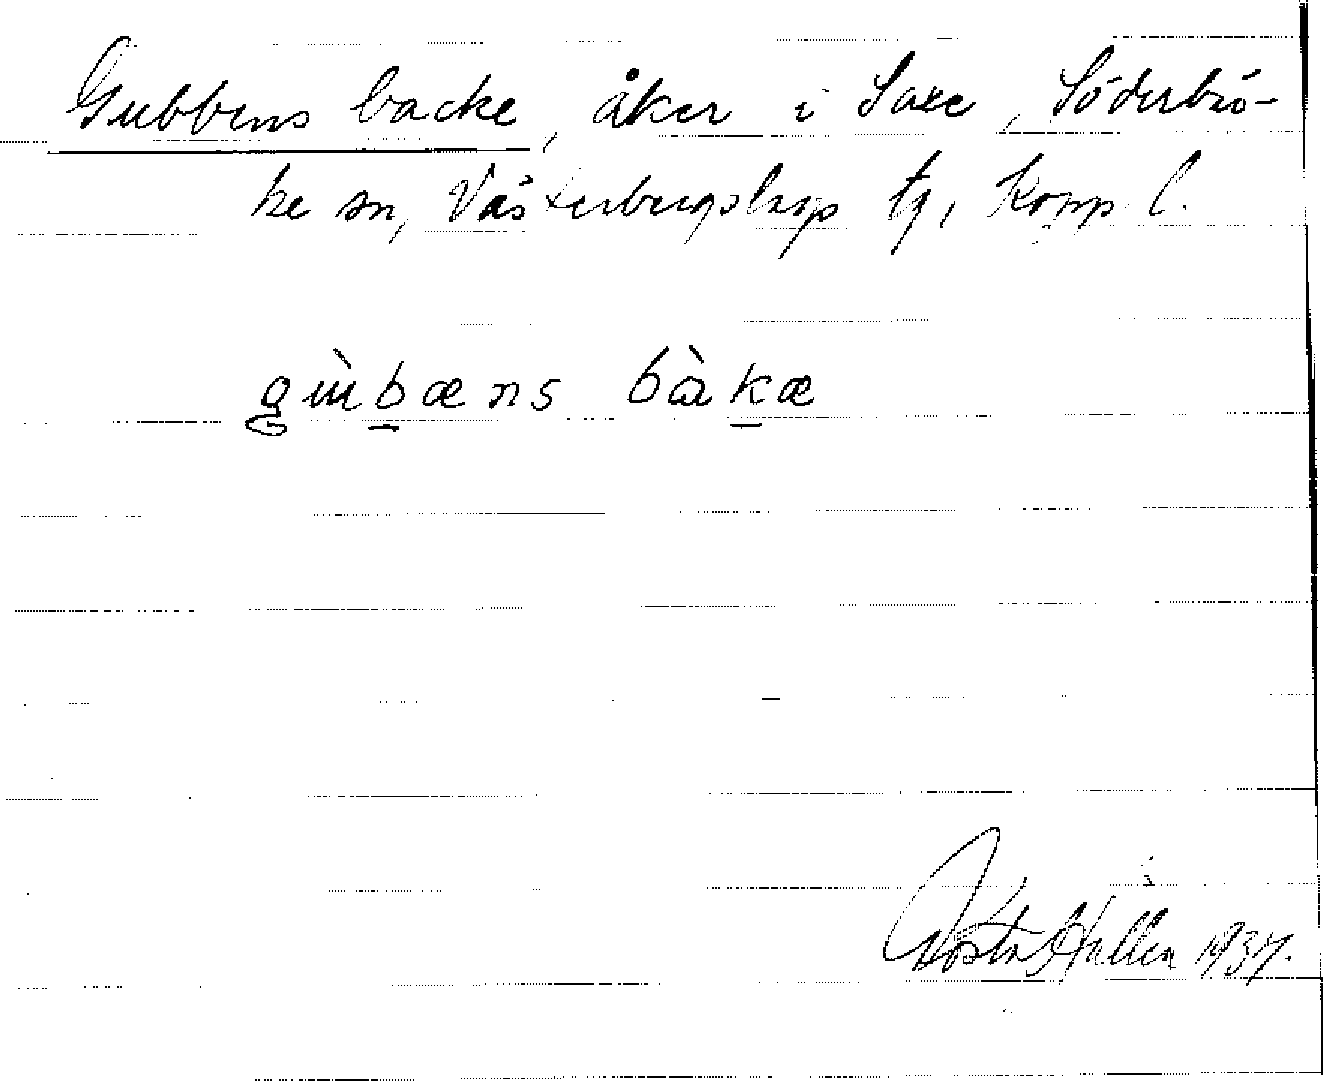 Gubbens backe, åker i Saxe, Söderbär-
ke sn, Västerbergslags tg, Kopp. l.
gùbæns bàkæ
Gösta Hallén 1937.